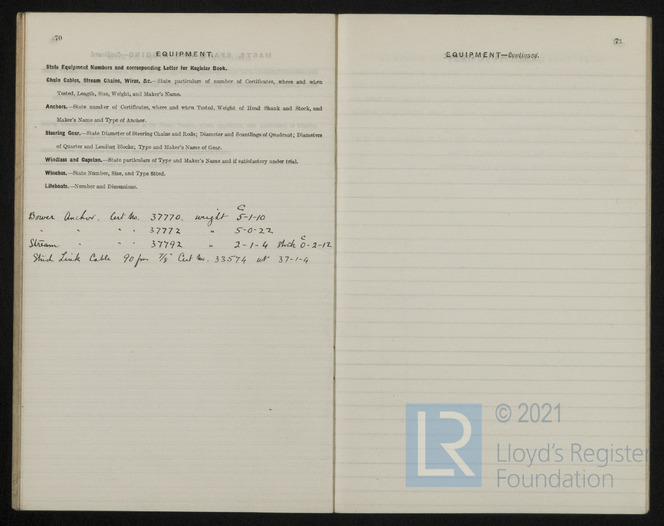 70
EQUIPMENT.
State Equipment Numbers and corresponding Letter for Register Book.
Chain Cables, Stream Chains, Wires, &c.—State particulars of number of Certificates, where and when
Tested, Length, Size, Weight, and Maker's Name.
Anchors.—State number of Certificates, where and when Tested, Weight of Head Shank and Stock, and
Maker's Name and Type of Anchor.
Steering Gear.—State Diameter of Steering Chains and Rods; Diameter and Scantlings of Quadrant; Diameters
of Quarter and Leading Blocks; Type and Maker's Name of Gear.
Windlass and Capstan.—State particulars of Type and Maker's Name and if satisfactory under trial.
Winches.—State Number, Size, and Type fitted.
Lifeboats.—Number and Dimensions.
Bower Anchor. Cert No. 37770. weight 5-1-10
" " " " 37772 " 5-0-22
Stream " " " 37792 " 2-1-4 Stock 0-2-12
Stud Link Cable 90 fm 7/8" Cert No. 33574 wt 37-1-4
EQUIPMENT—Continued.
LR
© 2021
Lloyd's Register
Foundation